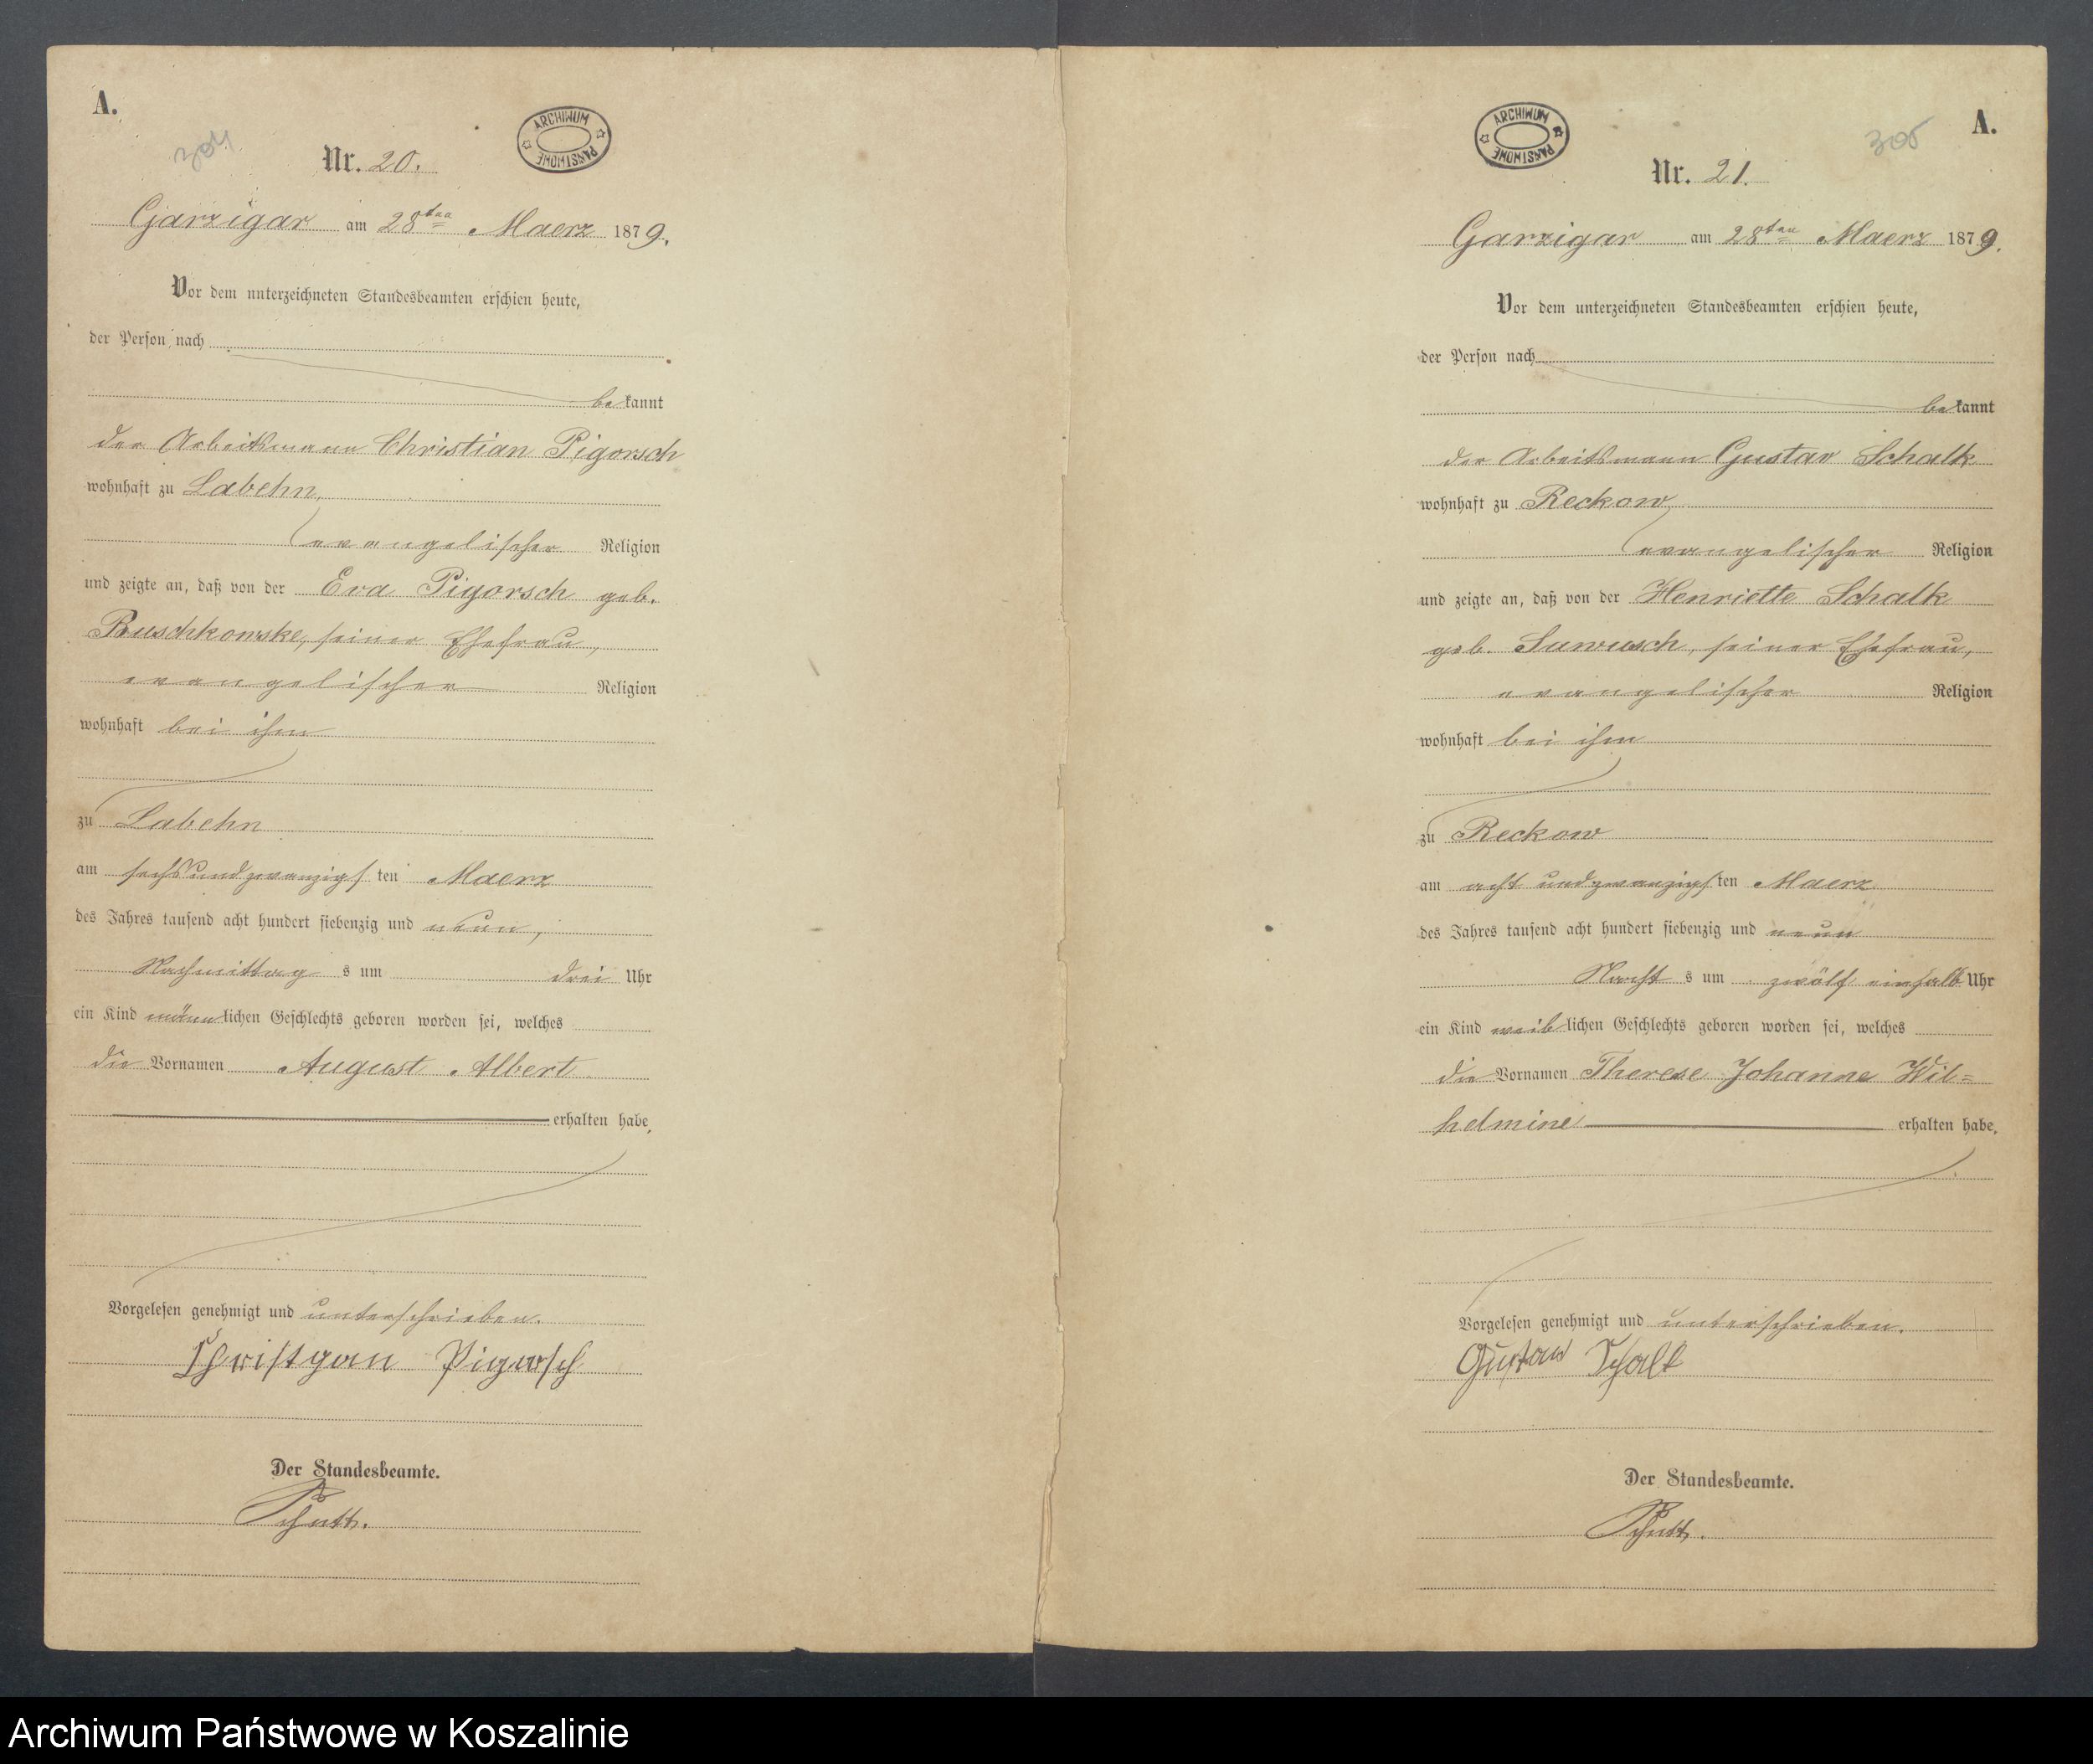 A.
304
ARCHIWUM PAŃSTWOWE
Nr. 20.
Garzigar am 28ten Maerz 1879.
Vor dem unterzeichneten Standesbeamten erschien heute,
der Person nach
bekannt
der Arbeitsmann Christian Pigorsch
wohnhaft zu Labehn,
evangelischer Religion
und zeigte an, daß von der Eva Pigorsch geb.
Buschkowske, seiner Ehefrau,
evangelischer Religion
wohnhaft bei ihm
zu Labehn
am sechsundzwanzigsten Maerz
des Jahres tausend acht hundert siebenzig und neun,
Nachmittags um drei Uhr
ein Kind männlichen Geschlechts geboren worden sei, welches
die Vornamen August Albert
erhalten habe,
Vorgelesen genehmigt und unterschrieben.
Christyan Pigorsch
Der Standesbeamte.
A.
305
ARCHIWUM PAŃSTWOWE
Nr. 21.
Garzigar am 28ten Maerz 1879.
Vor dem unterzeichneten Standesbeamten erschien heute,
der Person nach
bekannt
der Arbeitsmann Gustav Schalk
wohnhaft zu Reckow,
evangelischer Religion
und zeigte an, daß von der Henriette Schalk
geb. seiner Ehefrau,
evangelischer Religion
wohnhaft bei ihm
zu Reckow
am acht undzwanzigsten Maerz
des Jahres tausend acht hundert siebenzig und neun
Nachts um zwölf einhalb Uhr
ein Kind weiblichen Geschlechts geboren worden sei, welches
die Vornamen Therese Johanne Wil=
helmine erhalten habe.
Vorgelesen genehmigt und unterschrieben.
Gustav Schalk
Der Standesbeamte.
Archiwum Państwowe w Koszalinie